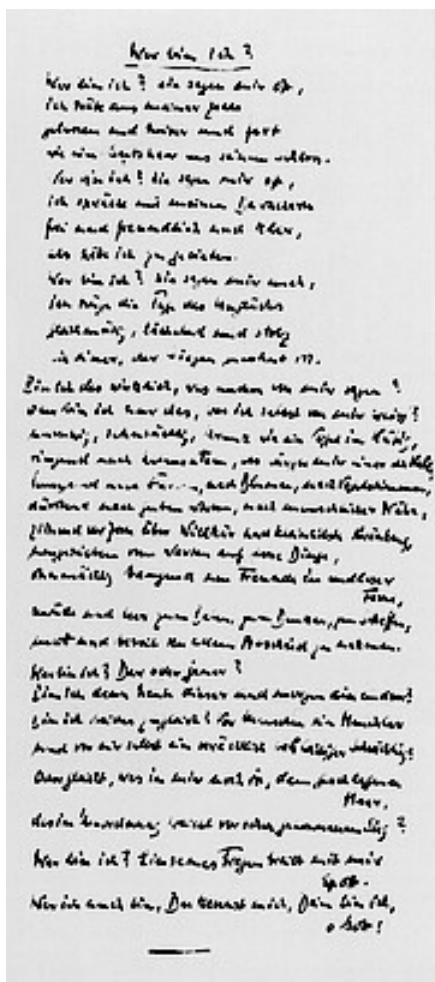 Wer bin ich?
Wer bin ich? Sie sagen mir oft,
ich träte aus meiner Zelle
gelassen und heiter und fest
wie ein Gutsherr aus seinem Schloss.
Wer bin ich? Sie sagen mir oft,
ich spräche mit meinen Bewachern
frei und freundlich und klar,
als hätte ich zu gebieten.
Wer bin ich? Sie sagen mir auch,
ich trüge die Tage des Unglücks
gleichmütig, lächelnd und stolz
wie einer, der Siegen gewohnt ist.
Bin ich das wirklich, was andere von mir sagen?
Oder bin ich nur das, was ich selbst von mir weiss?
unruhig, sehnsüchtig, krank, wie ein Vogel im Käfig,
ringend nach Lebensatem, als würgte mir einer die Kehle,
hungernd nach Farben, nach Blumen, nach Vogelstimmen,
dürstend nach guten Worten, nach menschlicher Nähe,
zitternd vor Zorn über Willkür und kleinlichste Kränkung,
umgetrieben vom Warten auf grosse Dinge,
ohnmächtig bangend um Freunde in endloser
Ferne,
müde und leer zum Beten, zum Denken, zum Schaffen,
matt und bereit, von allem Abschied zu nehmen.
Wer bin ich? Der oder jener?
Bin ich denn heute dieser und morgen ein andrer?
Bin ich beides zugleich? Vor Menschen ein Heuchler
und vor mir selbst ein verächtlich wehleidiger Schwächling?
Oder gleicht, was in mir noch ist, dem geschlagenen
Heer,
das in Unordnung weicht vor schon gewonnenem Sieg?
Wer bin ich? Einsames Fragen treibt mit mir
Spott.
Wer ich auch bin, Du kennst mich, Dein bin ich,
o Gott!